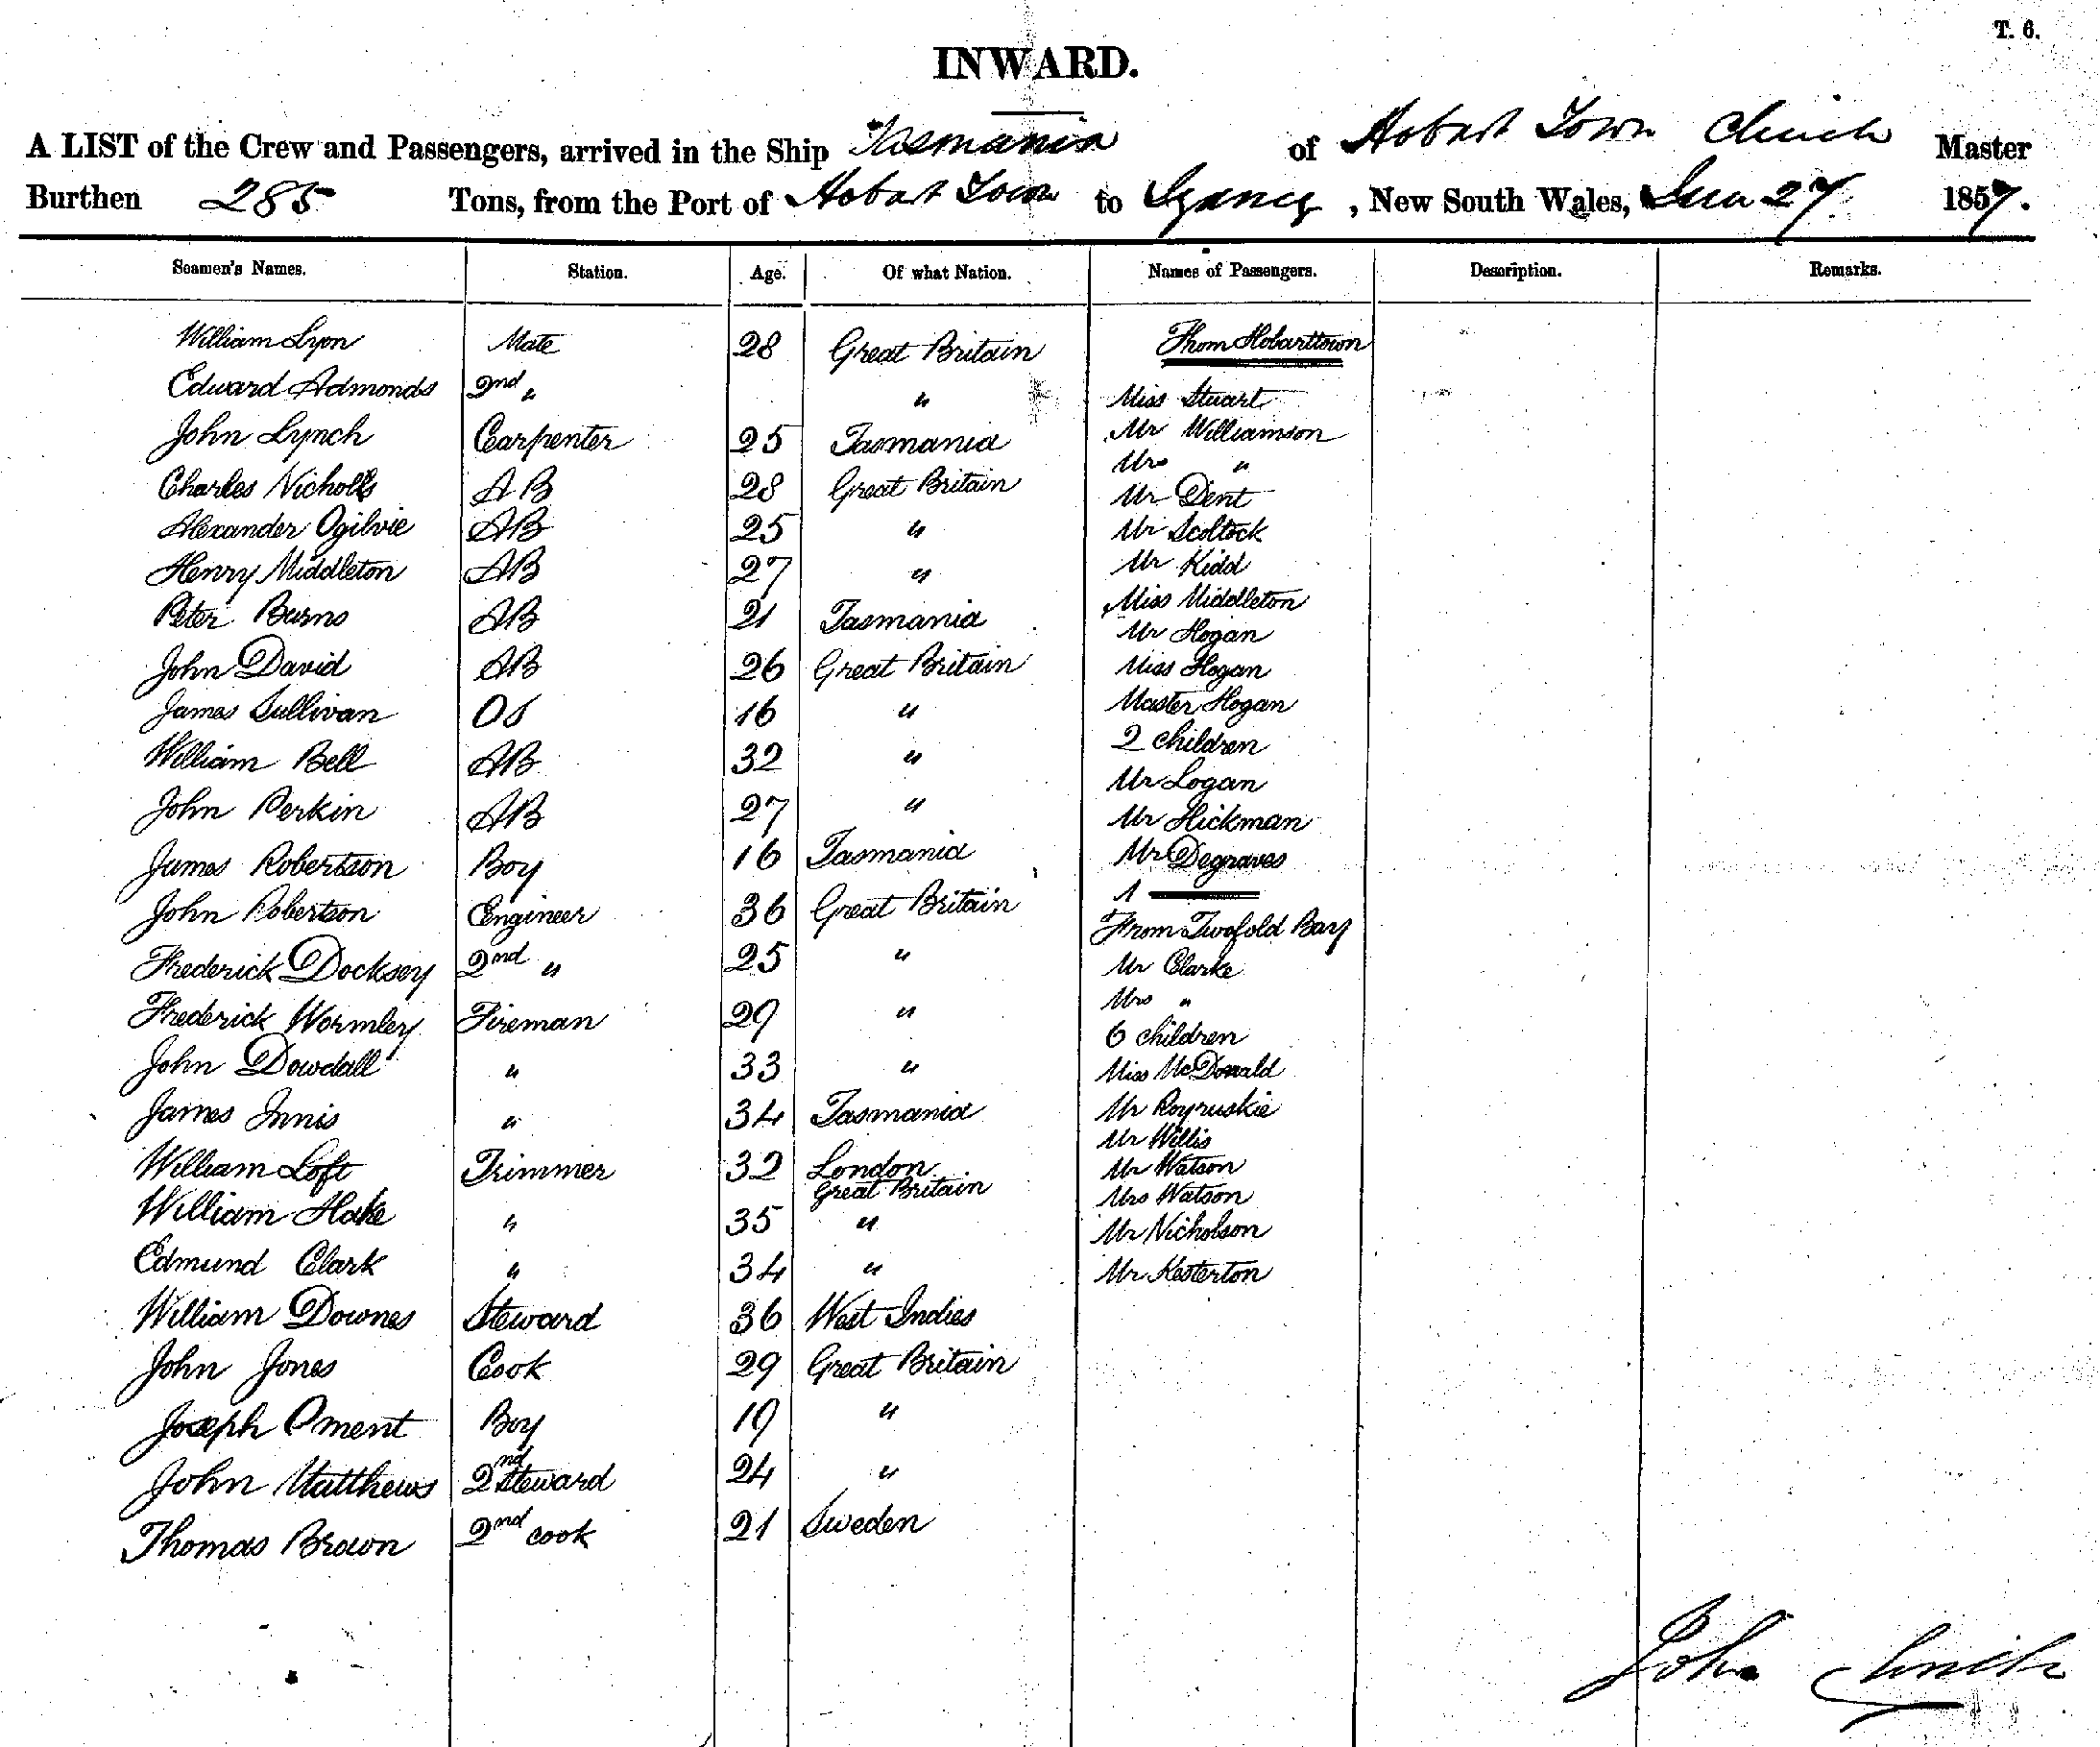 T. 6.
INWARD.
A LIST of the Crew and Passengers, arrived in the Ship Tasmania of Hobart Town Clinch Master
Burthen 285 Tons, from the Port of Hobart Town to Sydney, New South Wales, 27 1857.
Seamen's Names. Station. Age. Of what Nation. Names of Passengers. Description. Remarks.
William Lyon Mate 28 Great Britain From Hobarttown
Edward Admonds 2nd " " Miss Stuart
John Lynch Carpenter 25 Tasmania Mr Williamson
Mrs "
Charles Nicholls AB 28 Great Britain Mr Dent
Alexander Ogilvie AB 25 " Mr Scoltock
Henry Middleton AB 27 " Mr Kidd
Miss Middleton
Peter Burns AB 21 Tasmania Mr Hogan
John David AB 26 Great Britain Miss Hogan
James Sullivan OS 16 " Master Hogan
2 children
William Bell AB 32 " Mr Logan
John Perkin AB 27 " Mr Hickman
James Robertson Boy 16 Tasmania Mr Degraves
1
John Robertson Engineer 36 Great Britain From Twofold Bay
Frederick Docksey 2nd " 25 " Mr Clarke
Mrs "
Frederick Wormley Fireman 29 " 6 children
John Dowdall " 33 " Miss McDonald
James Innis " 34 Tasmania Mr Royruskie
Mr Willis
William Loft Trimmer 32 London Mr Watson
Great Britain Mrs Watson
William Hake " 35 " Mr Nicholson
Edmund Clark " 34 " Mr Kesterton
William Downes Steward 36 West Indies
John Jones Cook 29 Great Britain
Joseph Oment Boy 19 "
John Matthews 2nd Steward 24 "
Thomas Brown 2nd cook 21 Sweden
John Clinch